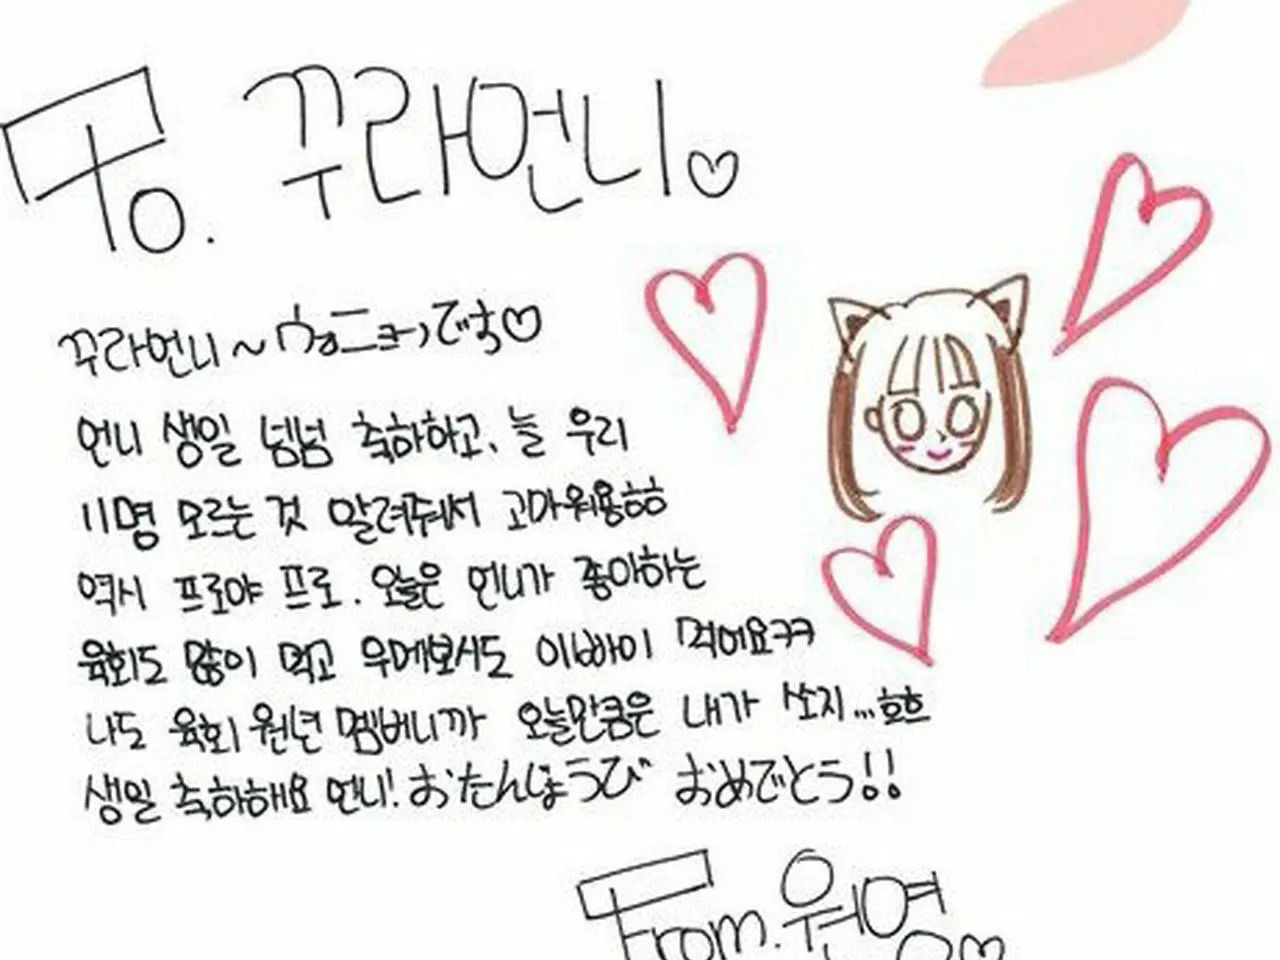 To. 꾸라언니♡
꾸라언니~ ウォニョンです♡
언니 생일 넘넘 축하하고, 늘 우리
11명 모르는 것 알려줘서 고마워용ㅎㅎ
역시 프로야 프로. 오늘은 언니가 좋아하는
육회도 많이 먹고 우메보시도 이빠이 먹어요ㅋㅋ
나도 육회 원년 멤버니까 오늘만큼은 내가 쏘지...흐흐
생일 축하해요 언니! おたんじょうび おめでとう!!
From. 원영♡